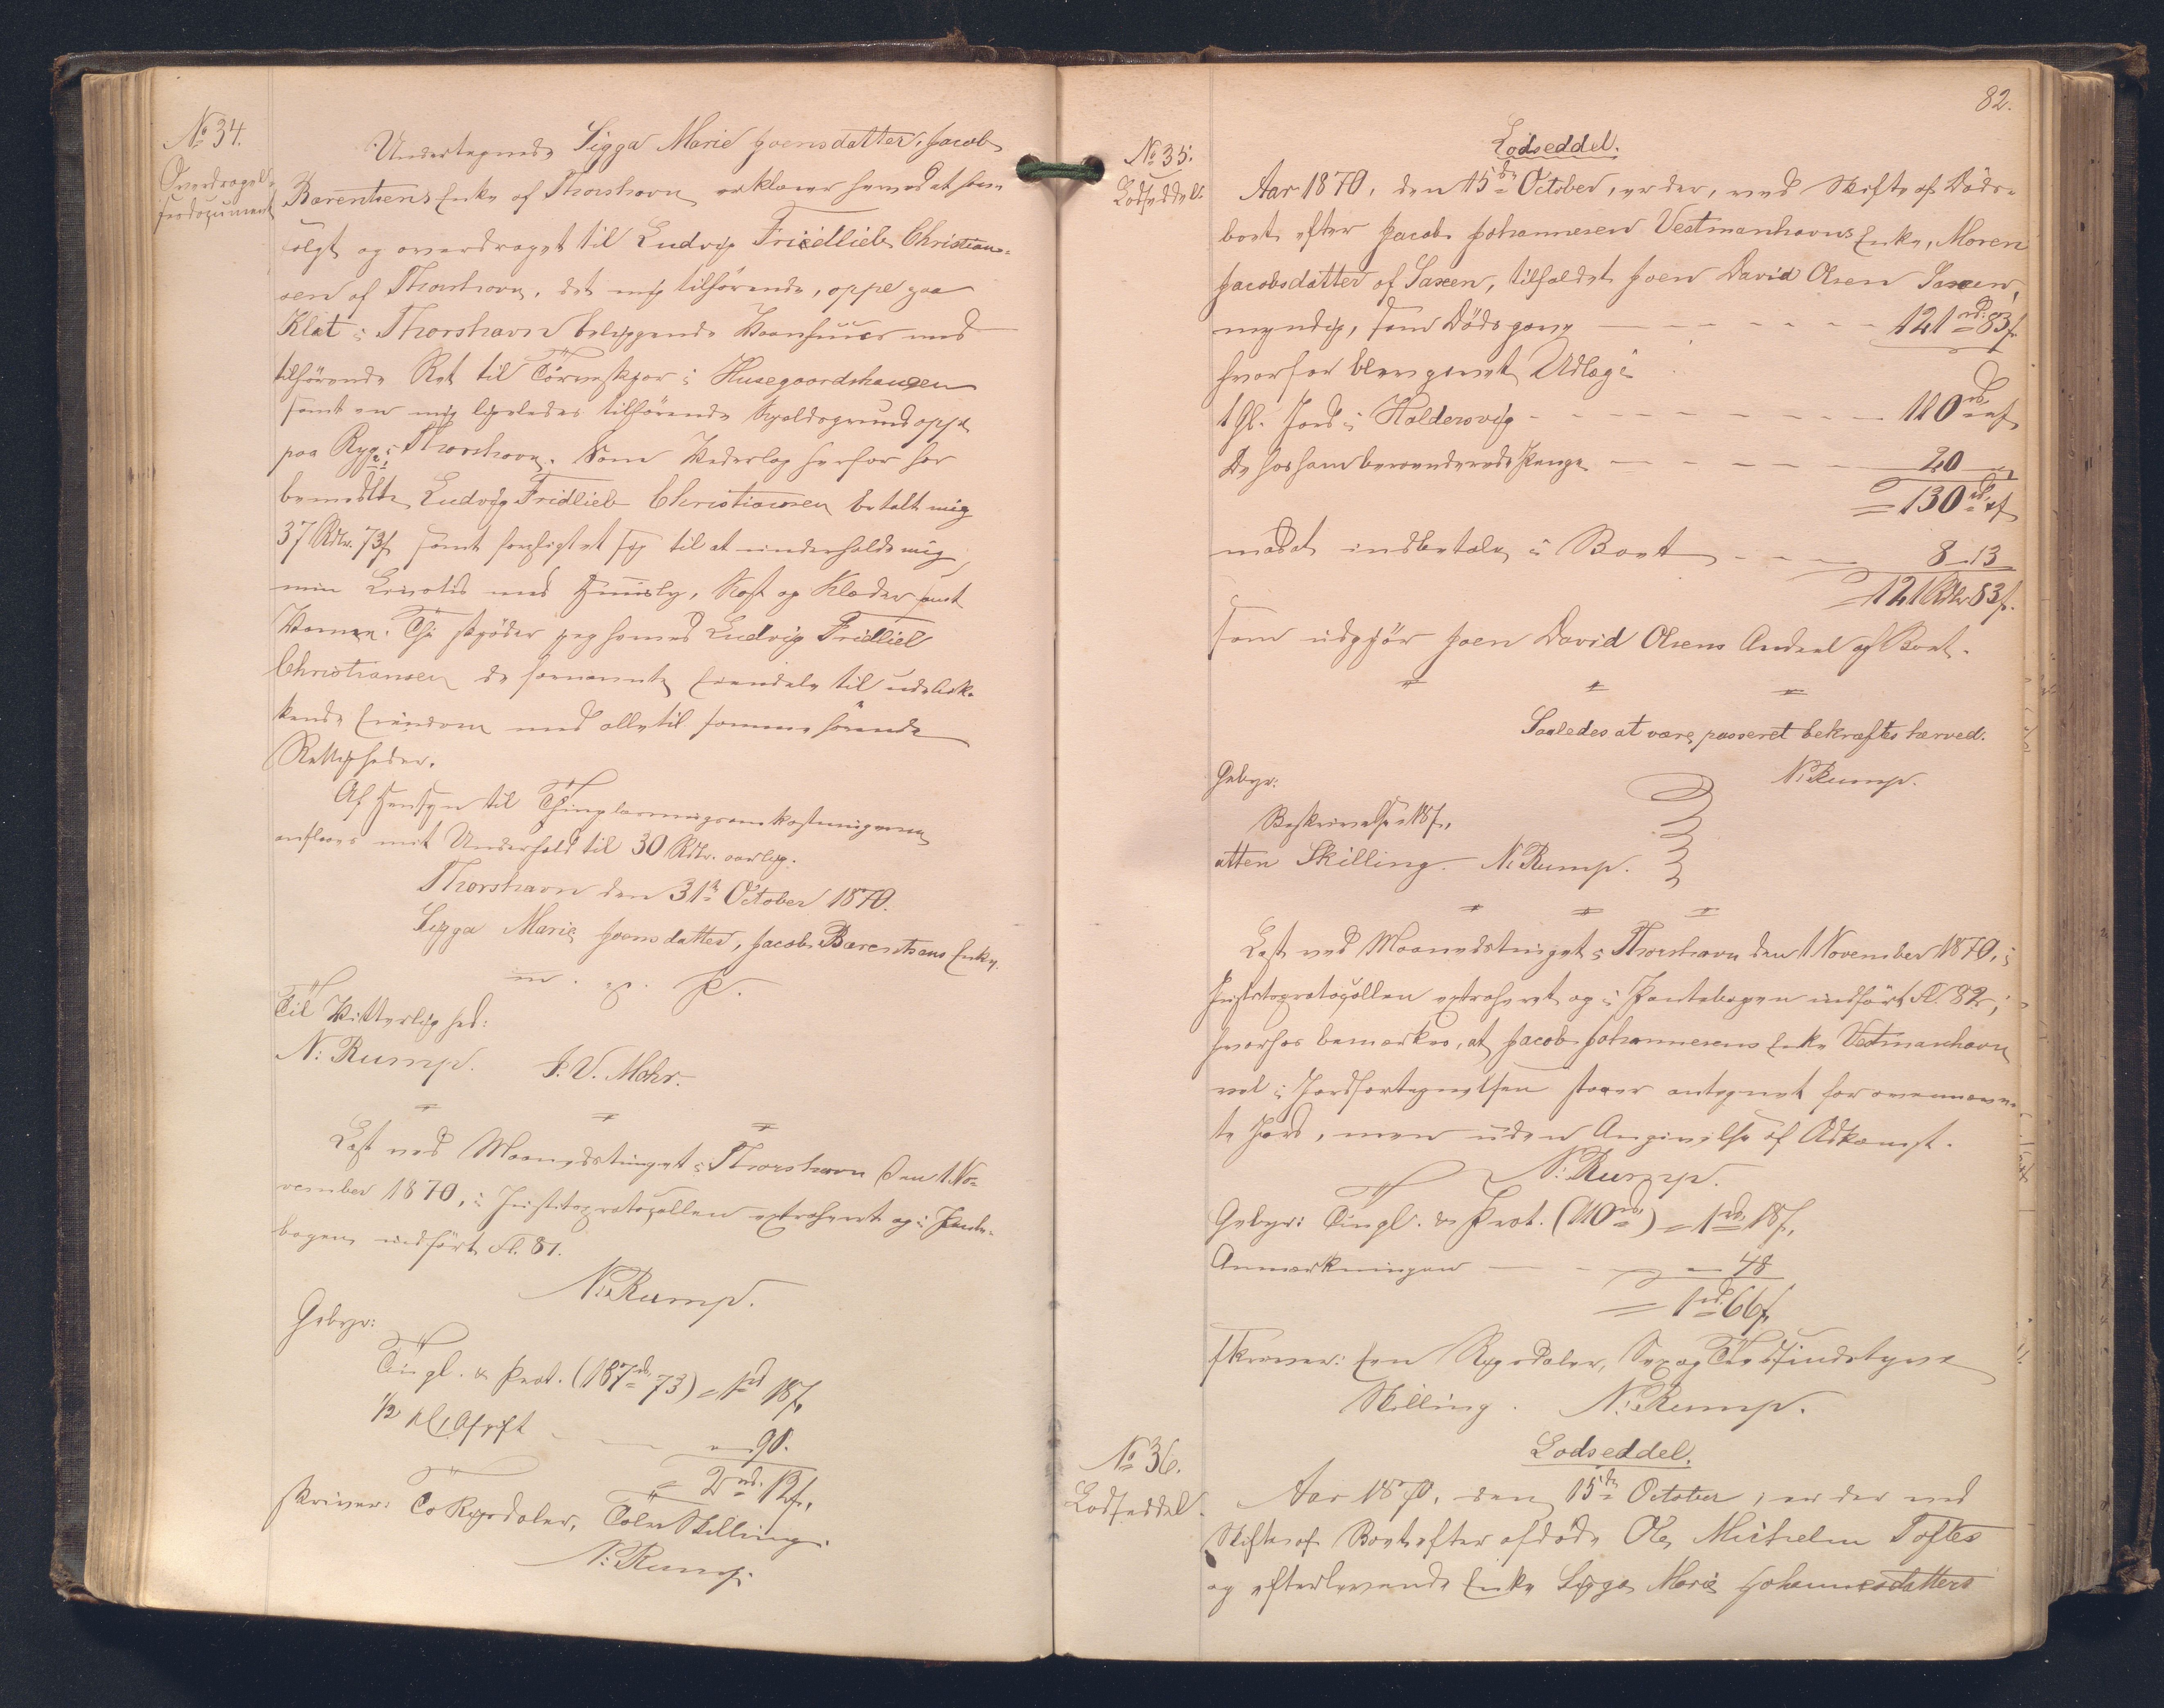 No 34.
Overdragel-
sesdocument
Undertegnede Sigga Marie Joensdatter, Jacob
Barentsens Enke af Thorshavn erklærer herved at have
solgt og overdraget til Ludvig Friedlieb Christian-
sen af Thorshavn, det mig tilhørende, oppe paa
Klat i Thorshavn beliggende Vaanhuus med
tilhørende Ret til Törveskjær i Husegaardshaugen
samt en mig ligeledes tilhørende Kjeldsgrund oppe
paa Ryge i Thorshavn. Som Vederlag herfor har
bemeldte Ludvig Fridlieb Christiansen betalt mig
37 Rdlr. 73 s samt forpligtet sig til at underholde mig
min Livstid med Huusly, Kost og Klæder samt
Varme. Thi skjøder jeg hermed Ludvig Fridlieb
Christiansen de fornævnte Eiendele til udeluk-
kende Eiendom med alle til samme hørende
Rettigheder.
Af Hensyn til Thinglæsningsomkostningerne
anslaaes mit Underhold til 30 Rdlr. aarlig.
Thorshavn den 31te October 1870.
Sigga Marie Joensdatter, Jacob Barentsens Enke.
m. p. P.
Til Vitterlighed:
N: Rump. J. V. Mohr.
Læst ved Maanedstinget i Thorshavn den 1 No-
vember 1870, i Justitsprotocollen extraheret og i Pante-
bogen indført Fl. 81.
N: Rump.
Gebyr:
Tingl. & Prot. (187 rd 73) = 1 rd 18 s,
1/2 pCt Afgift — 90.
= 2 rd. 12 s,
skriver: To Rigsdaler, Tolv Skilling.
N: Rump.
82.
No 35.
Lodseddel.
Lodseddel.
Aar 1870, den 15de October, er der, ved Skifte af Döds-
boet efter Jacob Johannesen Vestmanhavns Enke, Maren
Jacobsdatter af Saxen, tilfaldet Joen David Olsen Saxen,
myndig, som Dödsgave — 121 rd. 83 s
hvorfor blev givet Udlæg i
1 Gl. Jord i Haldersvig — 110 rd " s
De hos ham beroende rede Penge — 20 "
= 130 rd " s
mod at indbetale i Boet — 8 - 13
= 121 Rdlr 83 s.
som udgjör Joen David Olsens Andeel af Boet.
Saaledes at være passeret bekræftes herved.
N: Rump.
Gebyr:
Beskrivelse 18 s,
atten Skilling. N: Rump.
Læst ved Maanedstinget i Thorshavn den 1 November 1870, i
Justitsprotocollen extraheret og i Pantebogen indført Fl. 82,
hvorhos bemærkes, at Jacob Johannesens Enke Vestmanhavn
vel i Jordfortegnelsen staaer antegnet for ovennævn-
te Jord, men uden Angivelse af Adkomst.
N: Rump.
Gebyr: Tingl. & Prot. (110 rd) = 1 rd 18 s,
Anmærkningen — 48
= 1 rd. 66 s,
skriver: Een Rigsdaler, Sex og Tredsindstyve
Skilling. N: Rump.
No 36.
Lodseddel.
Lodseddel.
Aar 1870, den 15de October, er der ved
Skifte af Boet efter afdøde Ole Michelsen Toftes
og efterlevende Enke Sigga Marie Johannesdatters